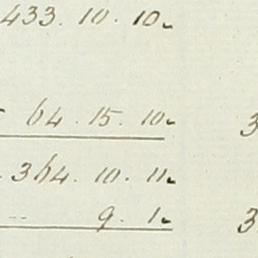 433. 10. 10.
64. 15. 10. 3
364. 10. 11.
9. 1. 3